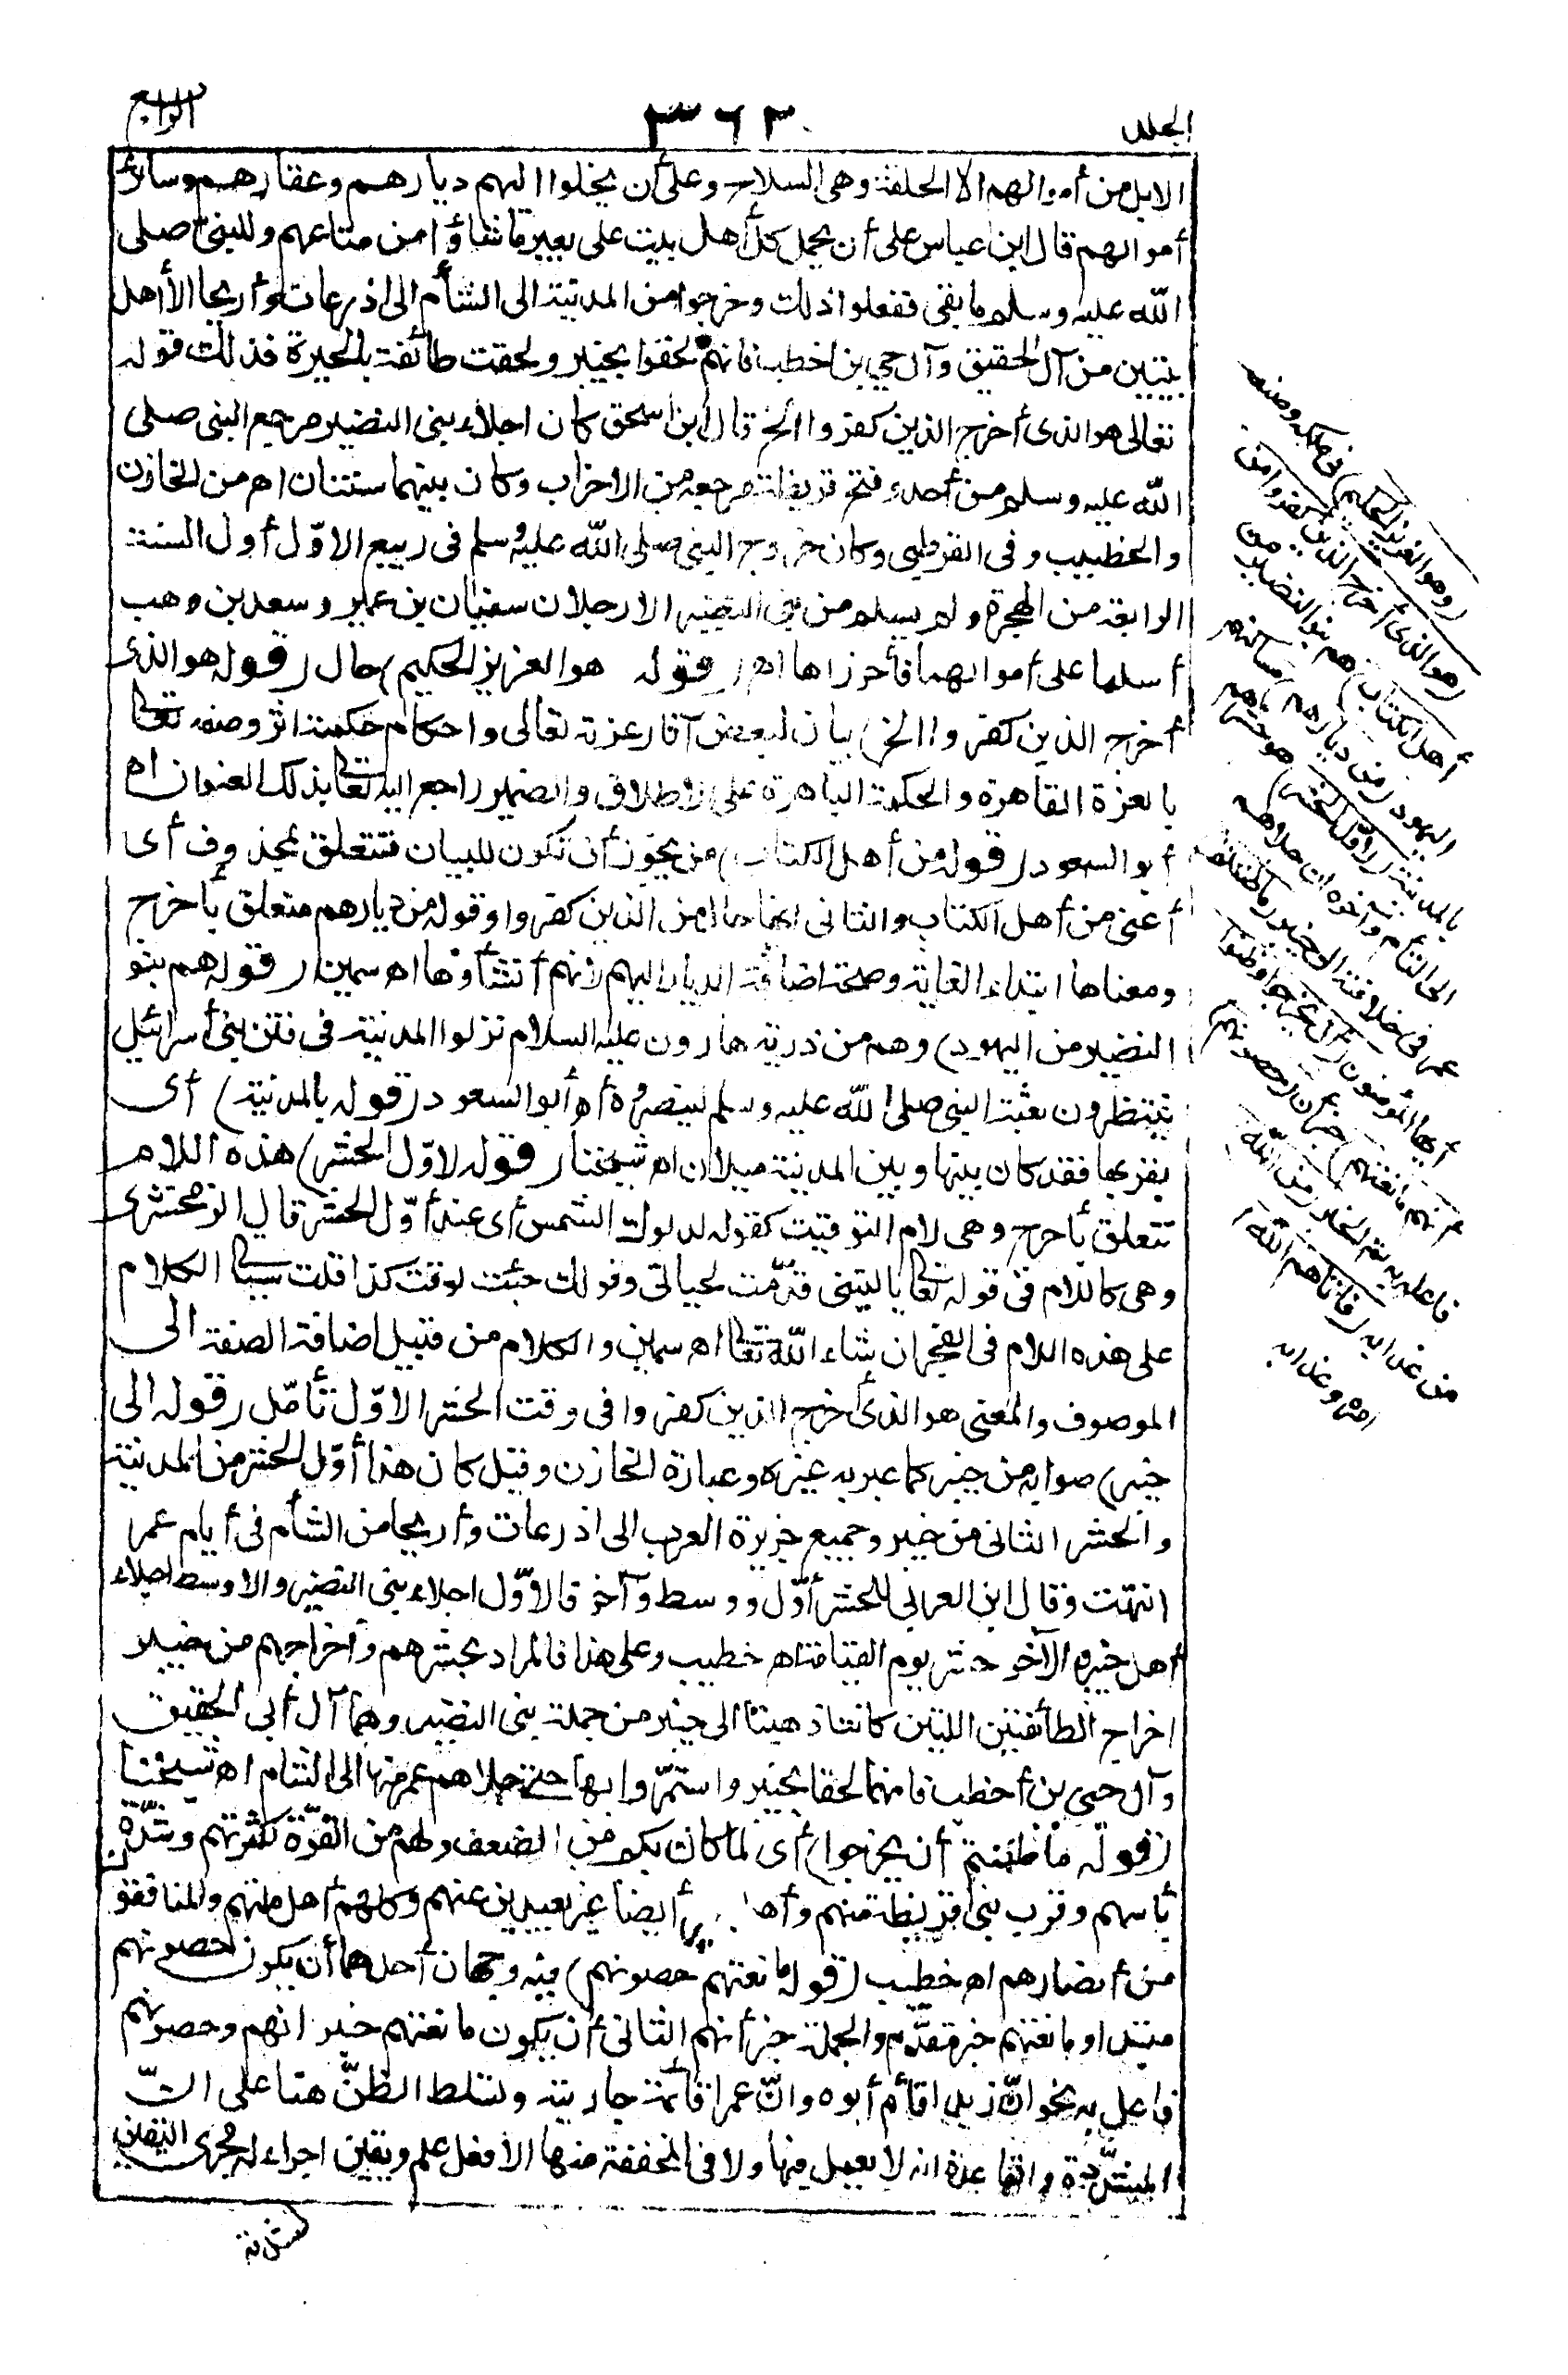 المجلد
٣٦٣
الرابع
الابل من أموالهم الا الحلقة وهى السلاح وعلى أن يخلوا اليهم ديارهم وعقارهم وسائر
أموالهم قال ابن عباس على أن يحمل كل أهل بيت على بعير ما شاؤا من متاعهم وللنبى صلى
الله عليه وسلم ما بقى ففعلوا ذلك وخرجوا من المدينة الى الشأم الى اذرعات وأريحا الا أهل
بيتين من آل الحقيق وآل حيي بن اخطب فانهم لحقوا بخيبر ولحقت طائفة بالحيرة فذلك قوله
تعالى هو الذى أخرج الذين كفروا الخ قال ابن اسحق كان اجلاء بنى النضير مرجع النبى صلى
الله عليه وسلم من أحد وفتح قريظة مرجعه من الاحزاب وكان بينهما سنتان اه من الخازن
والخطيب وفى القرطبى وكان خروج النبى صلى الله عليه وسلم فى ربيع الاوّل أول السنة
الرابعة من الهجرة ولم يسلم من بنى النضير الا رجلان سفيان بن عمير وسعد بن وهب
أسلما على أموالهما فأحرزاها اه (قوله هو العزيز الحكيم) حال (قوله هو الذى
أخرج الذين كفروا الخ) بيان لبعض آثار عزته تعالى واحكام حكمته اثر وصفه تعا
بالعزة القاهرة والحكمة الباهرة على الاطلاق والضمير راجع اليه تعا بذلك العنوان اه
أبو السعود (قوله من أهل الكتاب) من يجوز أن تكون للبيان فتتعلق بمحذوف أى
أعنى من أهل الكتاب والثانى انها حال من الذين كفروا وقوله من ديارهم متعلق بأخرج
ومعناها ابتداء الغاية وصحة اضافة الديار اليهم لانهم أنشأوها اه سمين (قوله هم بنو
النضير من اليهود) وهم من ذرية هارون عليه السلام نزلوا المدينة فى فتن بنى أسرائيل
ينتظرون بعثة النبى صلى الله عليه وسلم لينصروه اه أبو السعود (قوله بالمدينة) أى
بقربها فقد كان بينها وبين المدينة ميلان اه شيخنا (قوله لاوّل الحشر) هذه اللام
تتعلق بأخرج وهى لام التوقيت كقوله لدلوك الشمس أى عند أوّل الحشر قال الزمخشرى
وهى كاللام فى قوله تعا ياليتنى قدّمت لحياتى وقولك جئت لوقت كذا قلت سيأتى الكلام
على هذه اللام فى الفجر ان شاء الله تعا اه سمين والكلام من قبيل اضافة الصفة الى
الموصوف والمعنى هو الذى أخرج الذين كفروا فى وقت الحشر الاوّل تأمّل (قوله الى
خيبر) صوابه من خيبر كما عبر به غيره وعبارة الخازن وقيل كان هذا أوّل الحشر من المدينة
والحشر الثانى من خيبر وجميع جزيرة العرب الى اذرعات وأريحا من الشأم فى أيام عمر
انتهت وقال ابن العربى للحشر أوّل ووسط وآخر فالاوّل اجلاء بنى النضير والاوسط اجلاء
أهل خيبر والآخر حشر يوم القيامة اه خطيب وعلى هذا فالمراد بحشرهم واخراجهم من خيبر
اخراج الطائفتين اللتين كانتا ذهبتا الى خيبر من جملة بنى النضير وهما آل أبى الحقيق
وآل حيى بن أخطب فانهما لحقا بخيبر واستمرّوا بها حتى جلاهم عمر منها الى الشام اه شيخنا
(قوله ما ظننتم أن يخرجوا) أى لما كان بكم من الضعف ولهم من القوّة لكثرتهم وشدّة
بأسهم وقرب بنى قريظة منهم وأهل أيضا غير بعيدين عنهم وكلهم أهل ملتهم والمنافقون
من أنصارهم اه خطيب (قوله مانعتهم حصونهم) فيه وجهان أحدهما أن يكون حصونهم
مبتدا ومانعتهم خبر مقدّم والجملة خبر أنهم الثانى أن يكون مانعتهم خبر انهم وحصونهم
فاعل به نحو انّ زيدا قائم أبوه وانّ عمرا قائمة جاريته وتسلط الظنّ هنا على انّ
المشدّدة والقاعدة انه لا يعمل فيها ولا فى المخففة منها الا فعل علم ويقين اجراء له مجرى اليقين
(وهو العزيز الحكيم) فى ملكه وصنعه
(هو الذى أخرج الذين كفروا من
أهل الكتاب) هم بنو النضير من
اليهود (من ديارهم) مساكنهم
بالمدينة (لاوّل الحشر) هو حشرهم
الى الشأم وآخره ان جلاهم
عمر فى خلافته الى خيبر (ما ظننتم)
أيها المؤمنون (أن يخرجوا وظنوا
أنهم مانعتهم) خبر أن (حصونهم)
فاعله به تم الخبر (من الله)
من عذابه (فاتاهم الله)
امره وعذابه